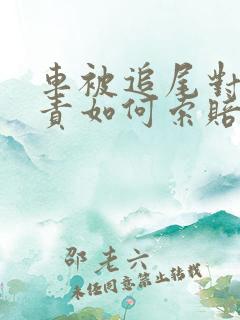 車被追尾對
責如何索賠
邵老六
未經同意禁止轉載